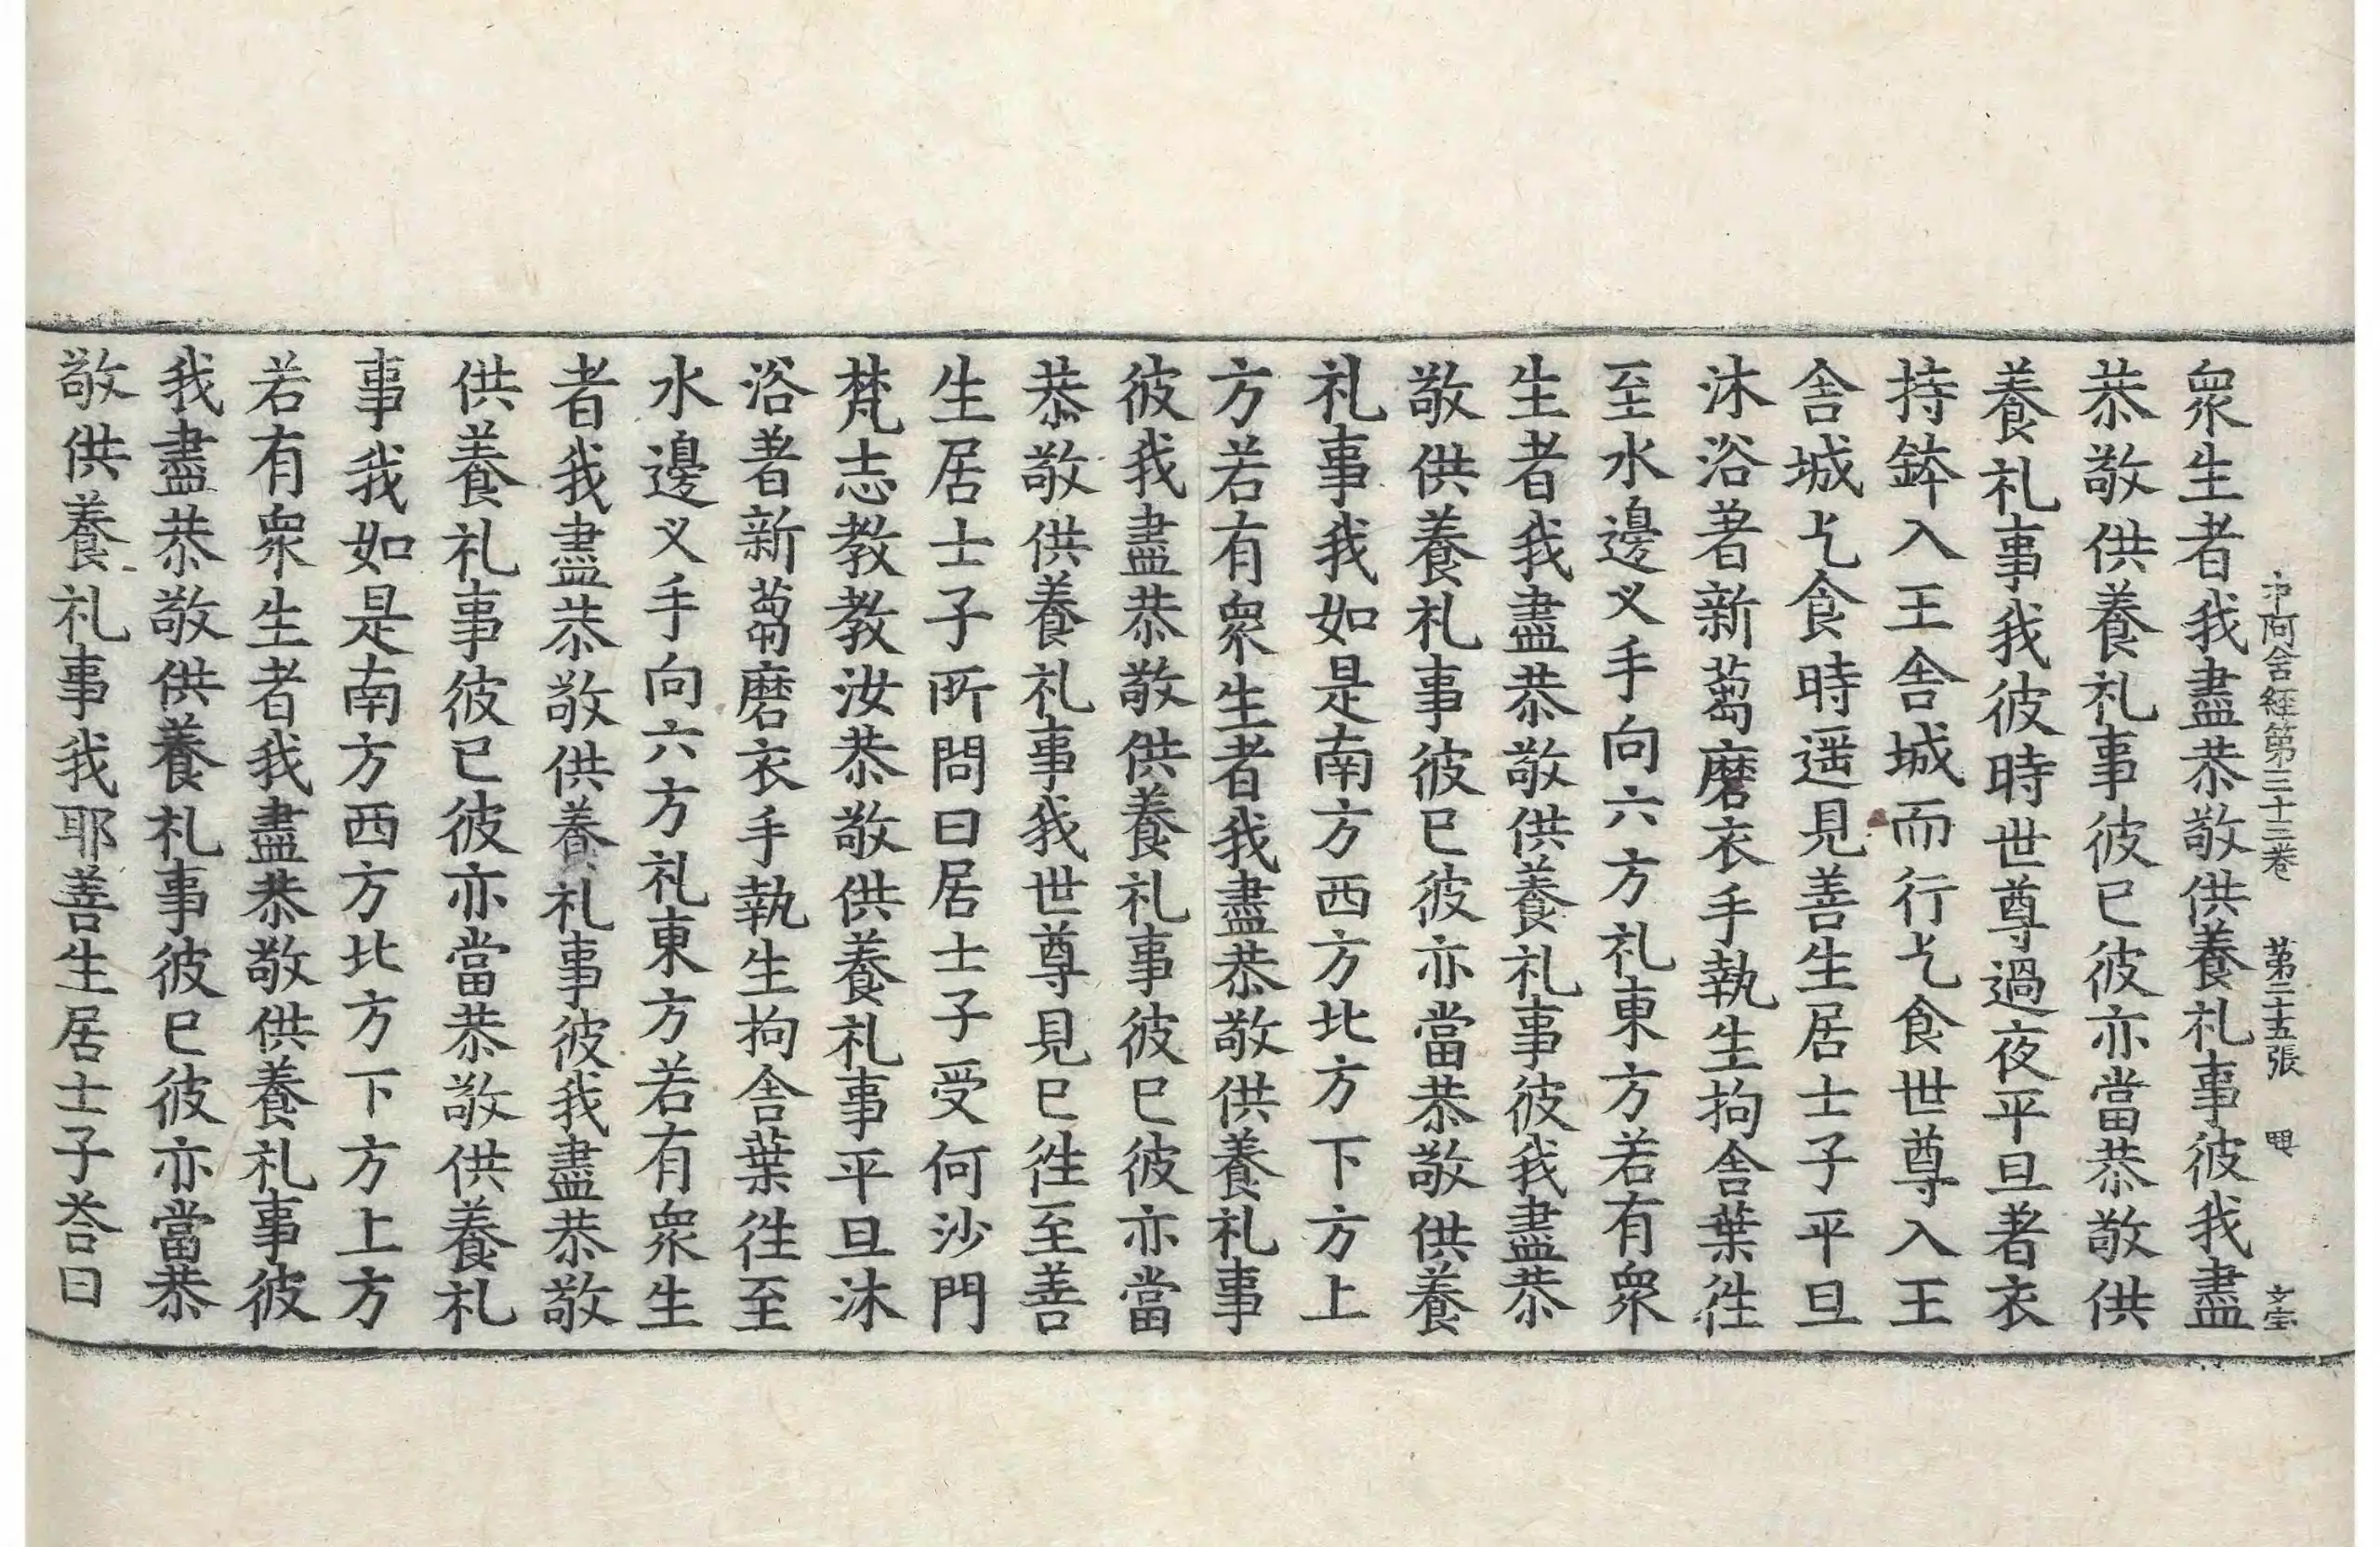 中阿含經第三十三卷　第二十五張　甲　文宝
衆生者我盡恭敬供養礼事彼我盡
恭敬供養礼事彼已彼亦當恭敬供
養礼事我彼時世尊過夜平旦著衣
持鉢入王舍城而行乞食世尊入王
舍城乞食時遥見善生居士子平旦
沐浴著新蒭磨衣手執生拘舍葉往
至水邊叉手向六方礼東方若有衆
生者我盡恭敬供養礼事彼我盡恭
敬供養礼事彼已彼亦當恭敬供養
礼事我如是南方西方北方下方上
方若有衆生者我盡恭敬供養礼事
彼我盡恭敬供養礼事彼已彼亦當
恭敬供養礼事我世尊見已往至善
生居士子所問曰居士子受何沙門
梵志教教汝恭敬供養礼事平旦沐
浴著新蒭磨衣手執生拘舍葉往至
水邊叉手向六方礼東方若有衆生
者我盡恭敬供養礼事彼我盡恭敬
供養礼事彼已彼亦當恭敬供養礼
事我如是南方西方北方下方上方
若有衆生者我盡恭敬供養礼事彼
我盡恭敬供養礼事彼已彼亦當恭
敬供養礼事我耶善生居士子荅曰